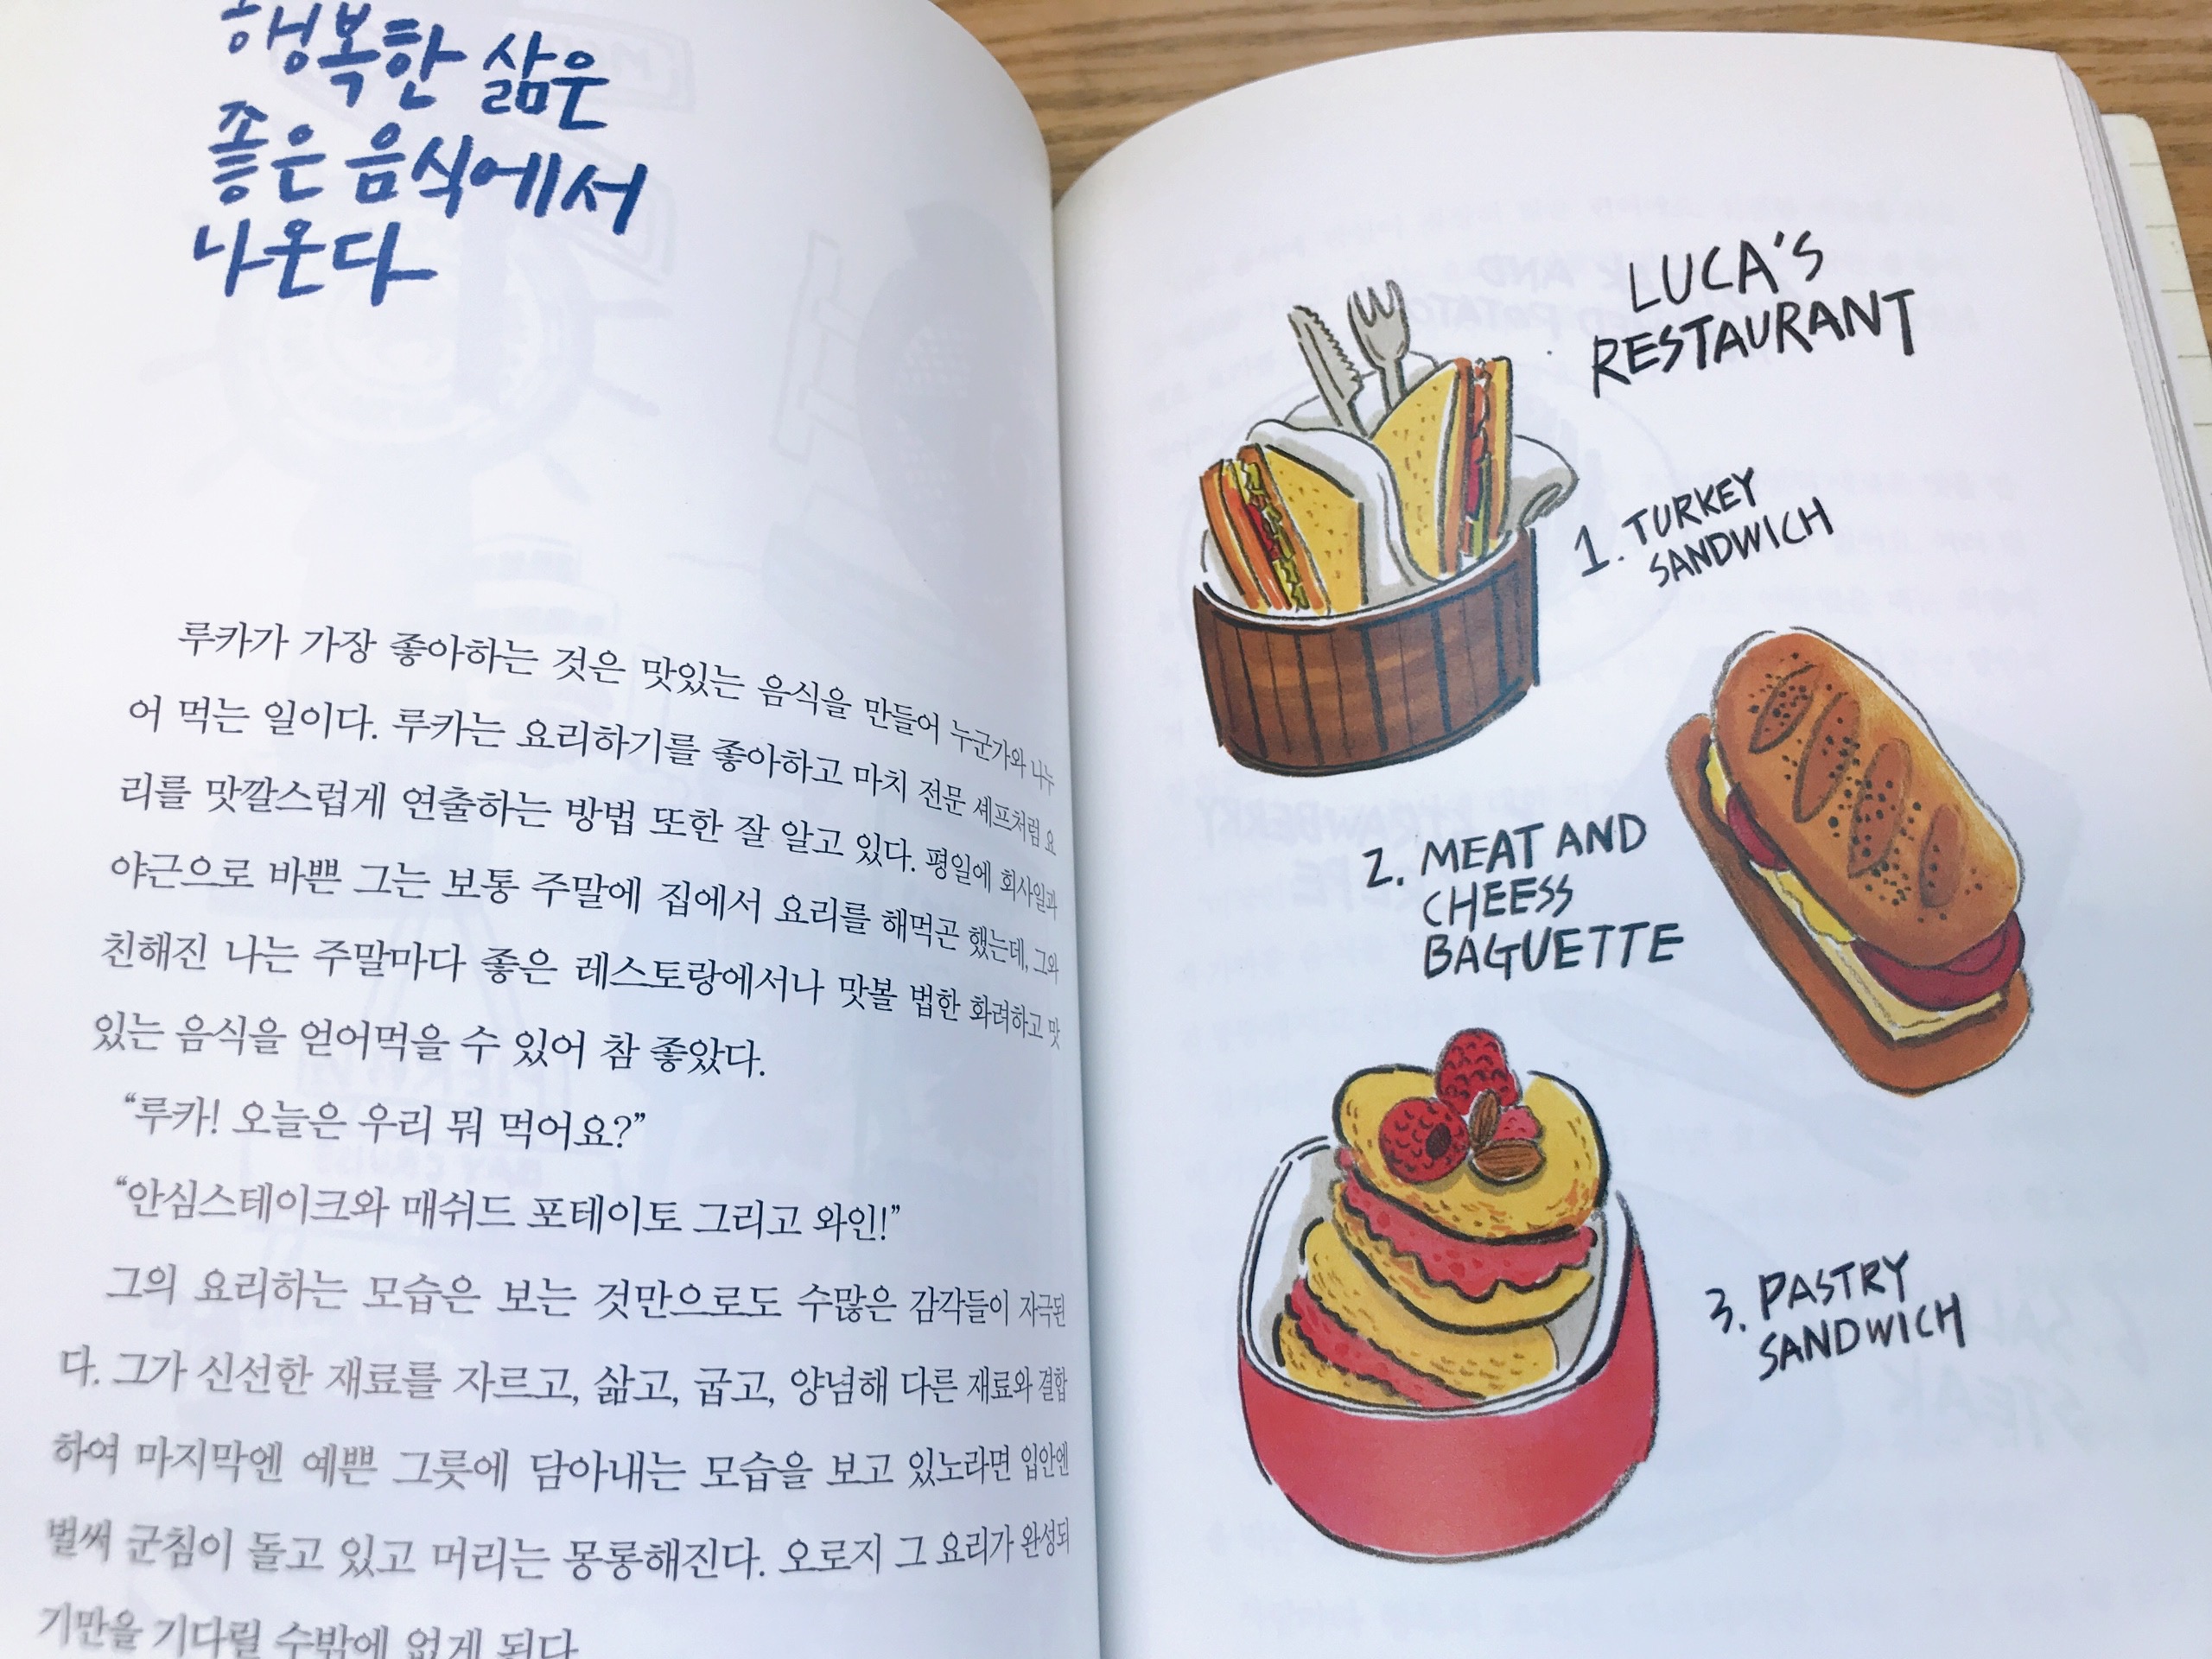 행복한 삶은
좋은 음식에서
나온다
루카가 가장 좋아하는 것은 맛있는 음식을 만들어 누군가와 나누
어 먹는 일이다. 루카는 요리하기를 좋아하고 마치 전문 셰프처럼 요
리를 맛깔스럽게 연출하는 방법 또한 잘 알고 있다. 평일에 회사일과
야근으로 바쁜 그는 보통 주말에 집에서 요리를 해먹곤 했는데, 그와
친해진 나는 주말마다 좋은 레스토랑에서나 맛볼 법한 화려하고 맛
있는 음식을 얻어먹을 수 있어 참 좋았다.
“루카! 오늘은 우리 뭐 먹어요?”
“안심스테이크와 매쉬드 포테이토 그리고 와인!”
그의 요리하는 모습은 보는 것만으로도 수많은 감각들이 자극된
다. 그가 신선한 재료를 자르고, 삶고, 굽고, 양념해 다른 재료와 결합
하여 마지막엔 예쁜 그릇에 담아내는 모습을 보고 있노라면 입안엔
벌써 군침이 돌고 있고 머리는 몽롱해진다. 오로지 그 요리가 완성되
기만을 기다릴 수밖에 없게 된다
LUCA'S
RESTAURANT
1. TURKEY
SANDWICH
2. MEAT AND
CHEESS
BAGUETTE
3. PASTRY
SANDWICH